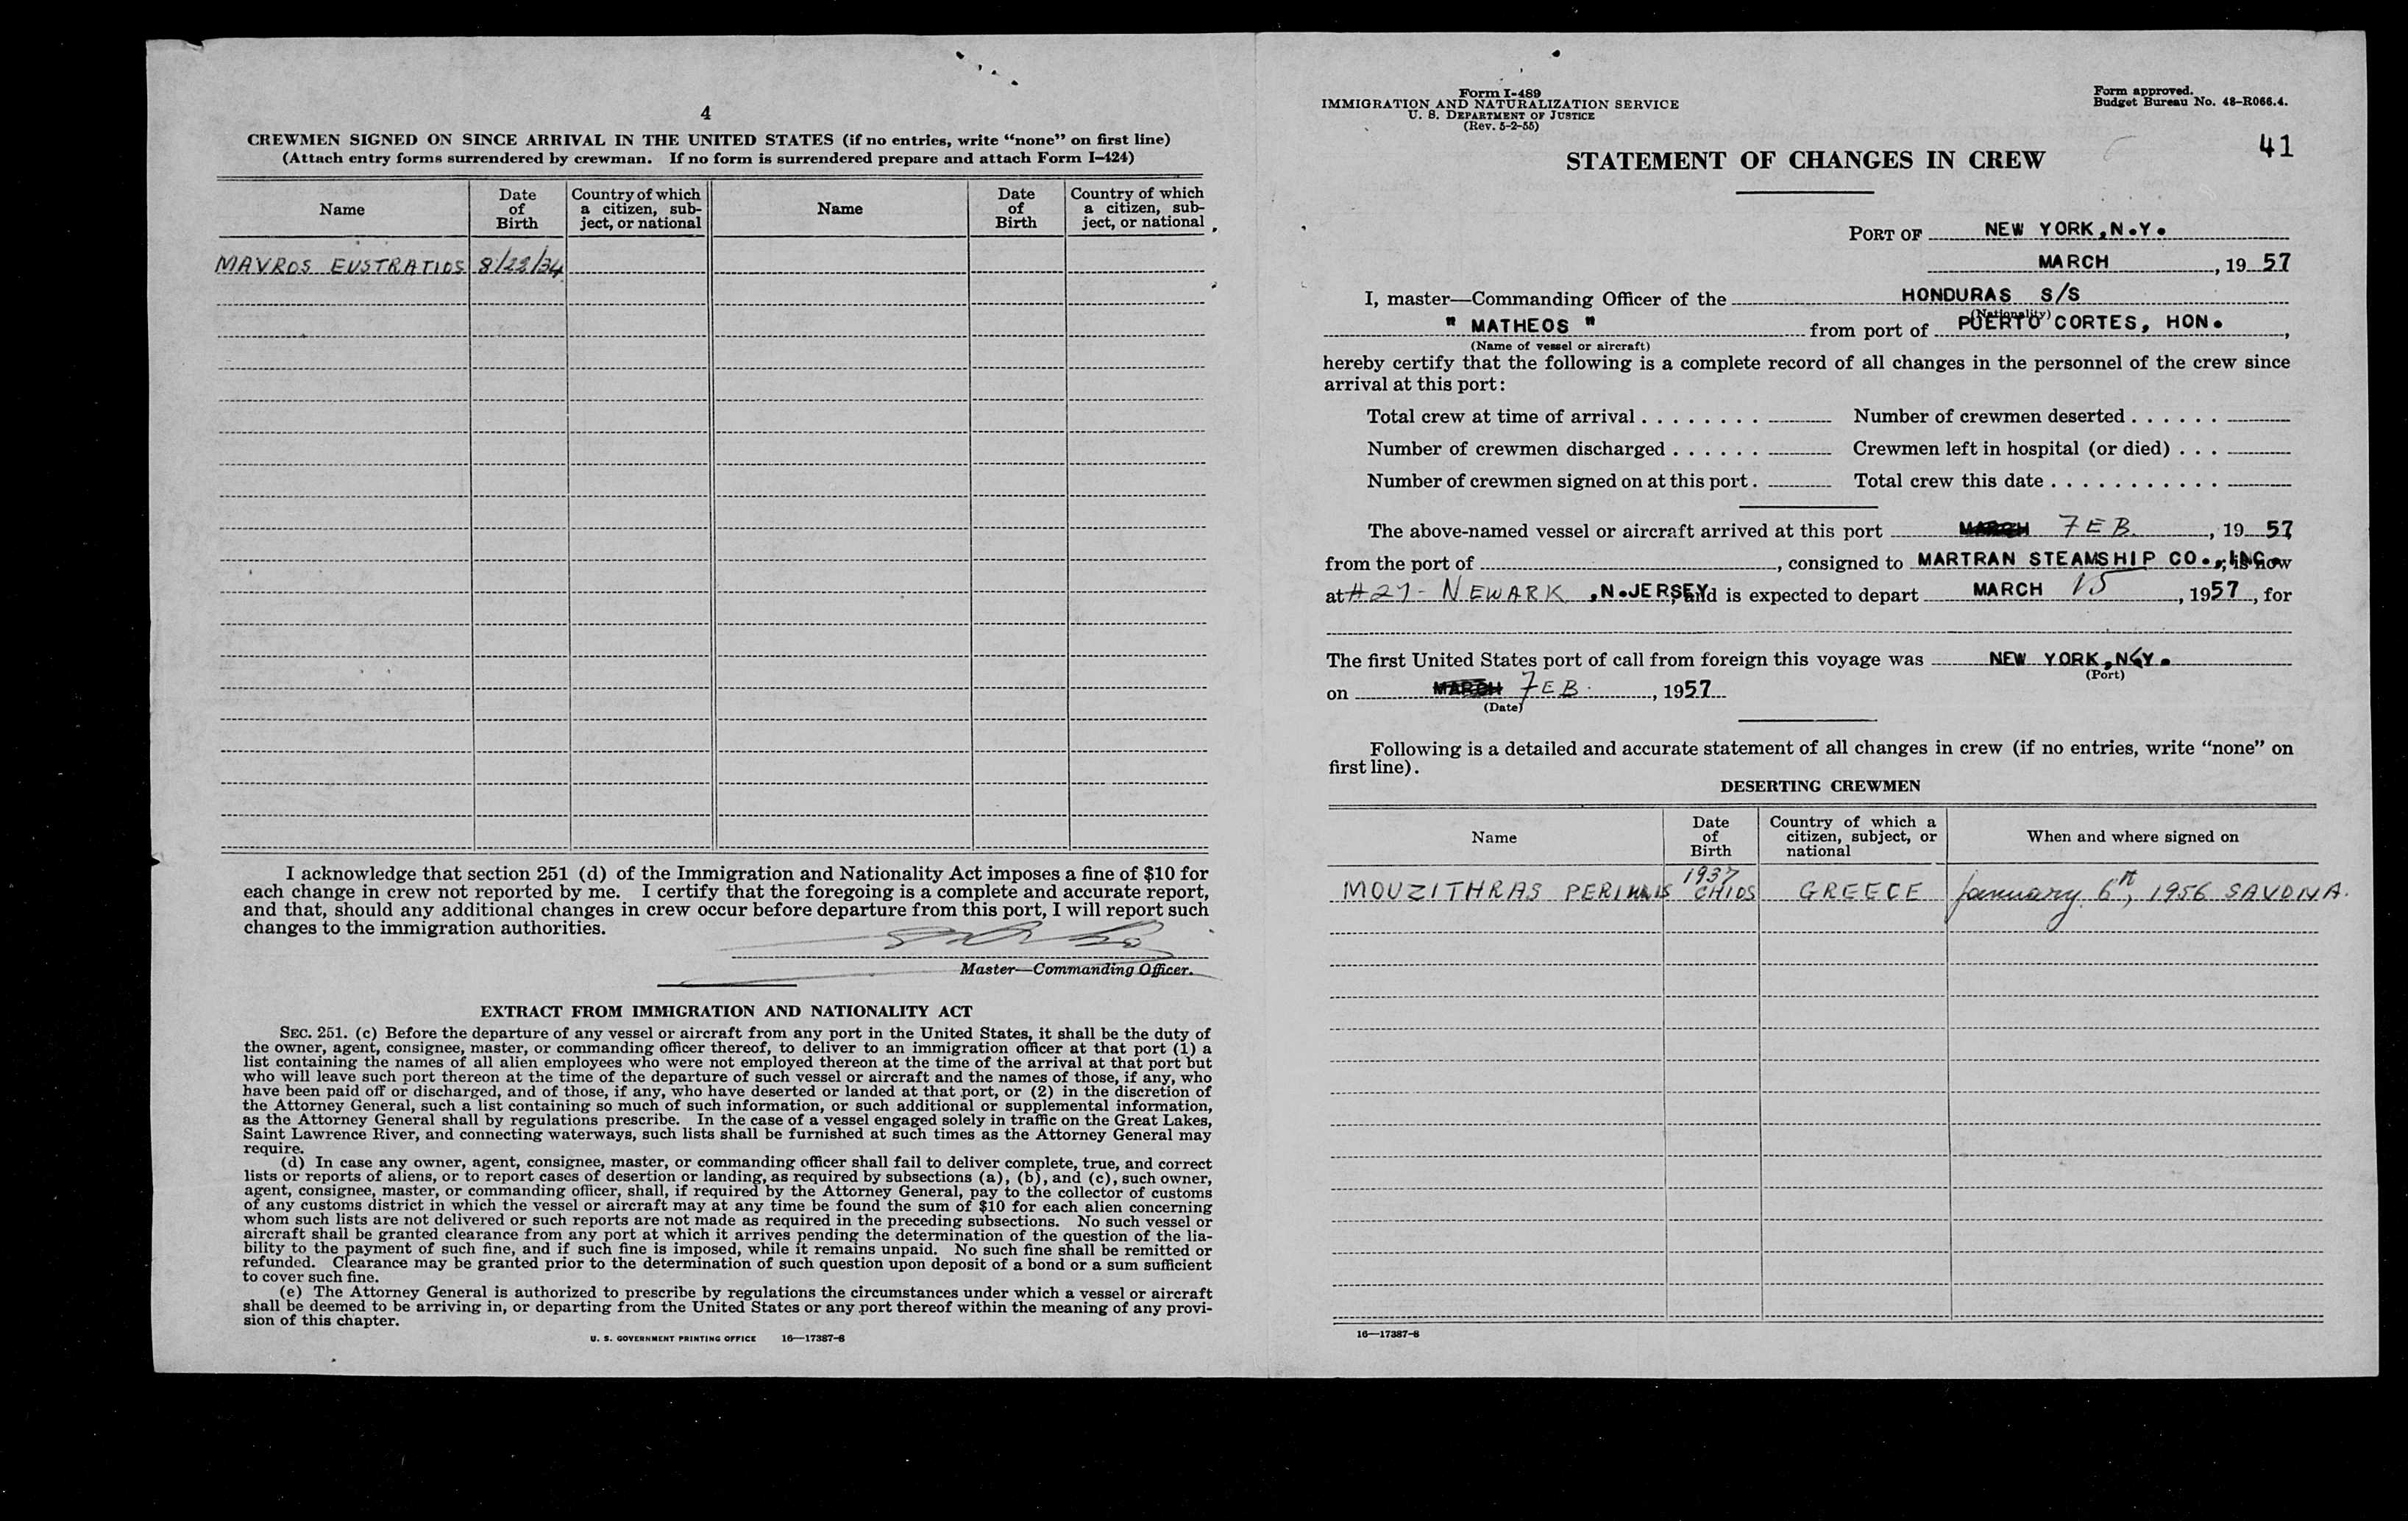 4
CREWMEN SIGNED ON SINCE ARRIVAL IN THE UNITED STATES (if no entries, write “none” on first line)
(Attach entry forms surrendered by crewman. If no form is surrendered prepare and attach Form I–424)
Name
Date of Birth
Country of which a citizen, subject, or national
Name
Date of Birth
Country of which a citizen, subject, or national
MAVROS EUSTRATIOS 8/23/34
I acknowledge that section 251 (d) of the Immigration and Nationality Act imposes a fine of $10 for
each change in crew not reported by me. I certify that the foregoing is a complete and accurate report,
and that, should any additional changes in crew occur before departure from this port, I will report such
changes to the immigration authorities.
Master—Commanding Officer.
EXTRACT FROM IMMIGRATION AND NATIONALITY ACT
SEC. 251. (c) Before the departure of any vessel or aircraft from any port in the United States, it shall be the duty of
the owner, agent, consignee, master, or commanding officer thereof, to deliver to an immigration officer at that port (1) a
list containing the names of all alien employees who were not employed thereon at the time of the arrival at that port but
who will leave such port thereon at the time of the departure of such vessel or aircraft and the names of those, if any, who
have been paid off or discharged, and of those, if any, who have deserted or landed at that port, or (2) in the discretion of
the Attorney General, such a list containing so much of such information, or such additional or supplemental information,
as the Attorney General shall by regulations prescribe. In the case of a vessel engaged solely in traffic on the Great Lakes,
Saint Lawrence River, and connecting waterways, such lists shall be furnished at such times as the Attorney General may
require.
(d) In case any owner, agent, consignee, master, or commanding officer shall fail to deliver complete, true, and correct
lists or reports of aliens, or to report cases of desertion or landing, as required by subsections (a), (b), and (c), such owner,
agent, consignee, master, or commanding officer, shall, if required by the Attorney General, pay to the collector of customs
of any customs district in which the vessel or aircraft may at any time be found the sum of $10 for each alien concerning
whom such lists are not delivered or such reports are not made as required in the preceding subsections. No such vessel or
aircraft shall be granted clearance from any port at which it arrives pending the determination of the question of the lia-
bility to the payment of such fine, and if such fine is imposed, while it remains unpaid. No such fine shall be remitted or
refunded. Clearance may be granted prior to the determination of such question upon deposit of a bond or a sum sufficient
to cover such fine.
(e) The Attorney General is authorized to prescribe by regulations the circumstances under which a vessel or aircraft
shall be deemed to be arriving in, or departing from the United States or any port thereof within the meaning of any provi-
sion of this chapter.
U. S. GOVERNMENT PRINTING OFFICE 16—17387-8
Form I-489
IMMIGRATION AND NATURALIZATION SERVICE
U. S. DEPARTMENT OF JUSTICE
(Rev. 5-2-55)
Form approved.
Budget Bureau No. 48–R066.4.
41
STATEMENT OF CHANGES IN CREW
PORT OF NEW YORK,N.Y.
MARCH, 19 57
I, master—Commanding Officer of the HONDURAS S/S
(Nationality)
" MATHEOS " from port of PUERTO CORTES, HON.,
(Name of vessel or aircraft)
hereby certify that the following is a complete record of all changes in the personnel of the crew since
arrival at this port:
Total crew at time of arrival . . . . . . . . Number of crewmen deserted . . . . . .
Number of crewmen discharged . . . . . . Crewmen left in hospital (or died) . . .
Number of crewmen signed on at this port . Total crew this date . . . . . . . . . . .
The above-named vessel or aircraft arrived at this port MARCH FEB., 19 57
from the port of , consigned to MARTRAN STEAMSHIP CO., INC. ; is now
at #27 - NEWARK ,N.JERSEY, and is expected to depart MARCH 15, 1957, for
The first United States port of call from foreign this voyage was NEW YORK,N.Y.
(Port)
on MARCH FEB., 1957
(Date)
Following is a detailed and accurate statement of all changes in crew (if no entries, write “none” on
first line).
DESERTING CREWMEN
Name
Date of Birth
Country of which a citizen, subject, or national
When and where signed on
1937
MOUZITHRAS CHIOS GREECE January 6th, 1956 SAVONA.
16—17387-8